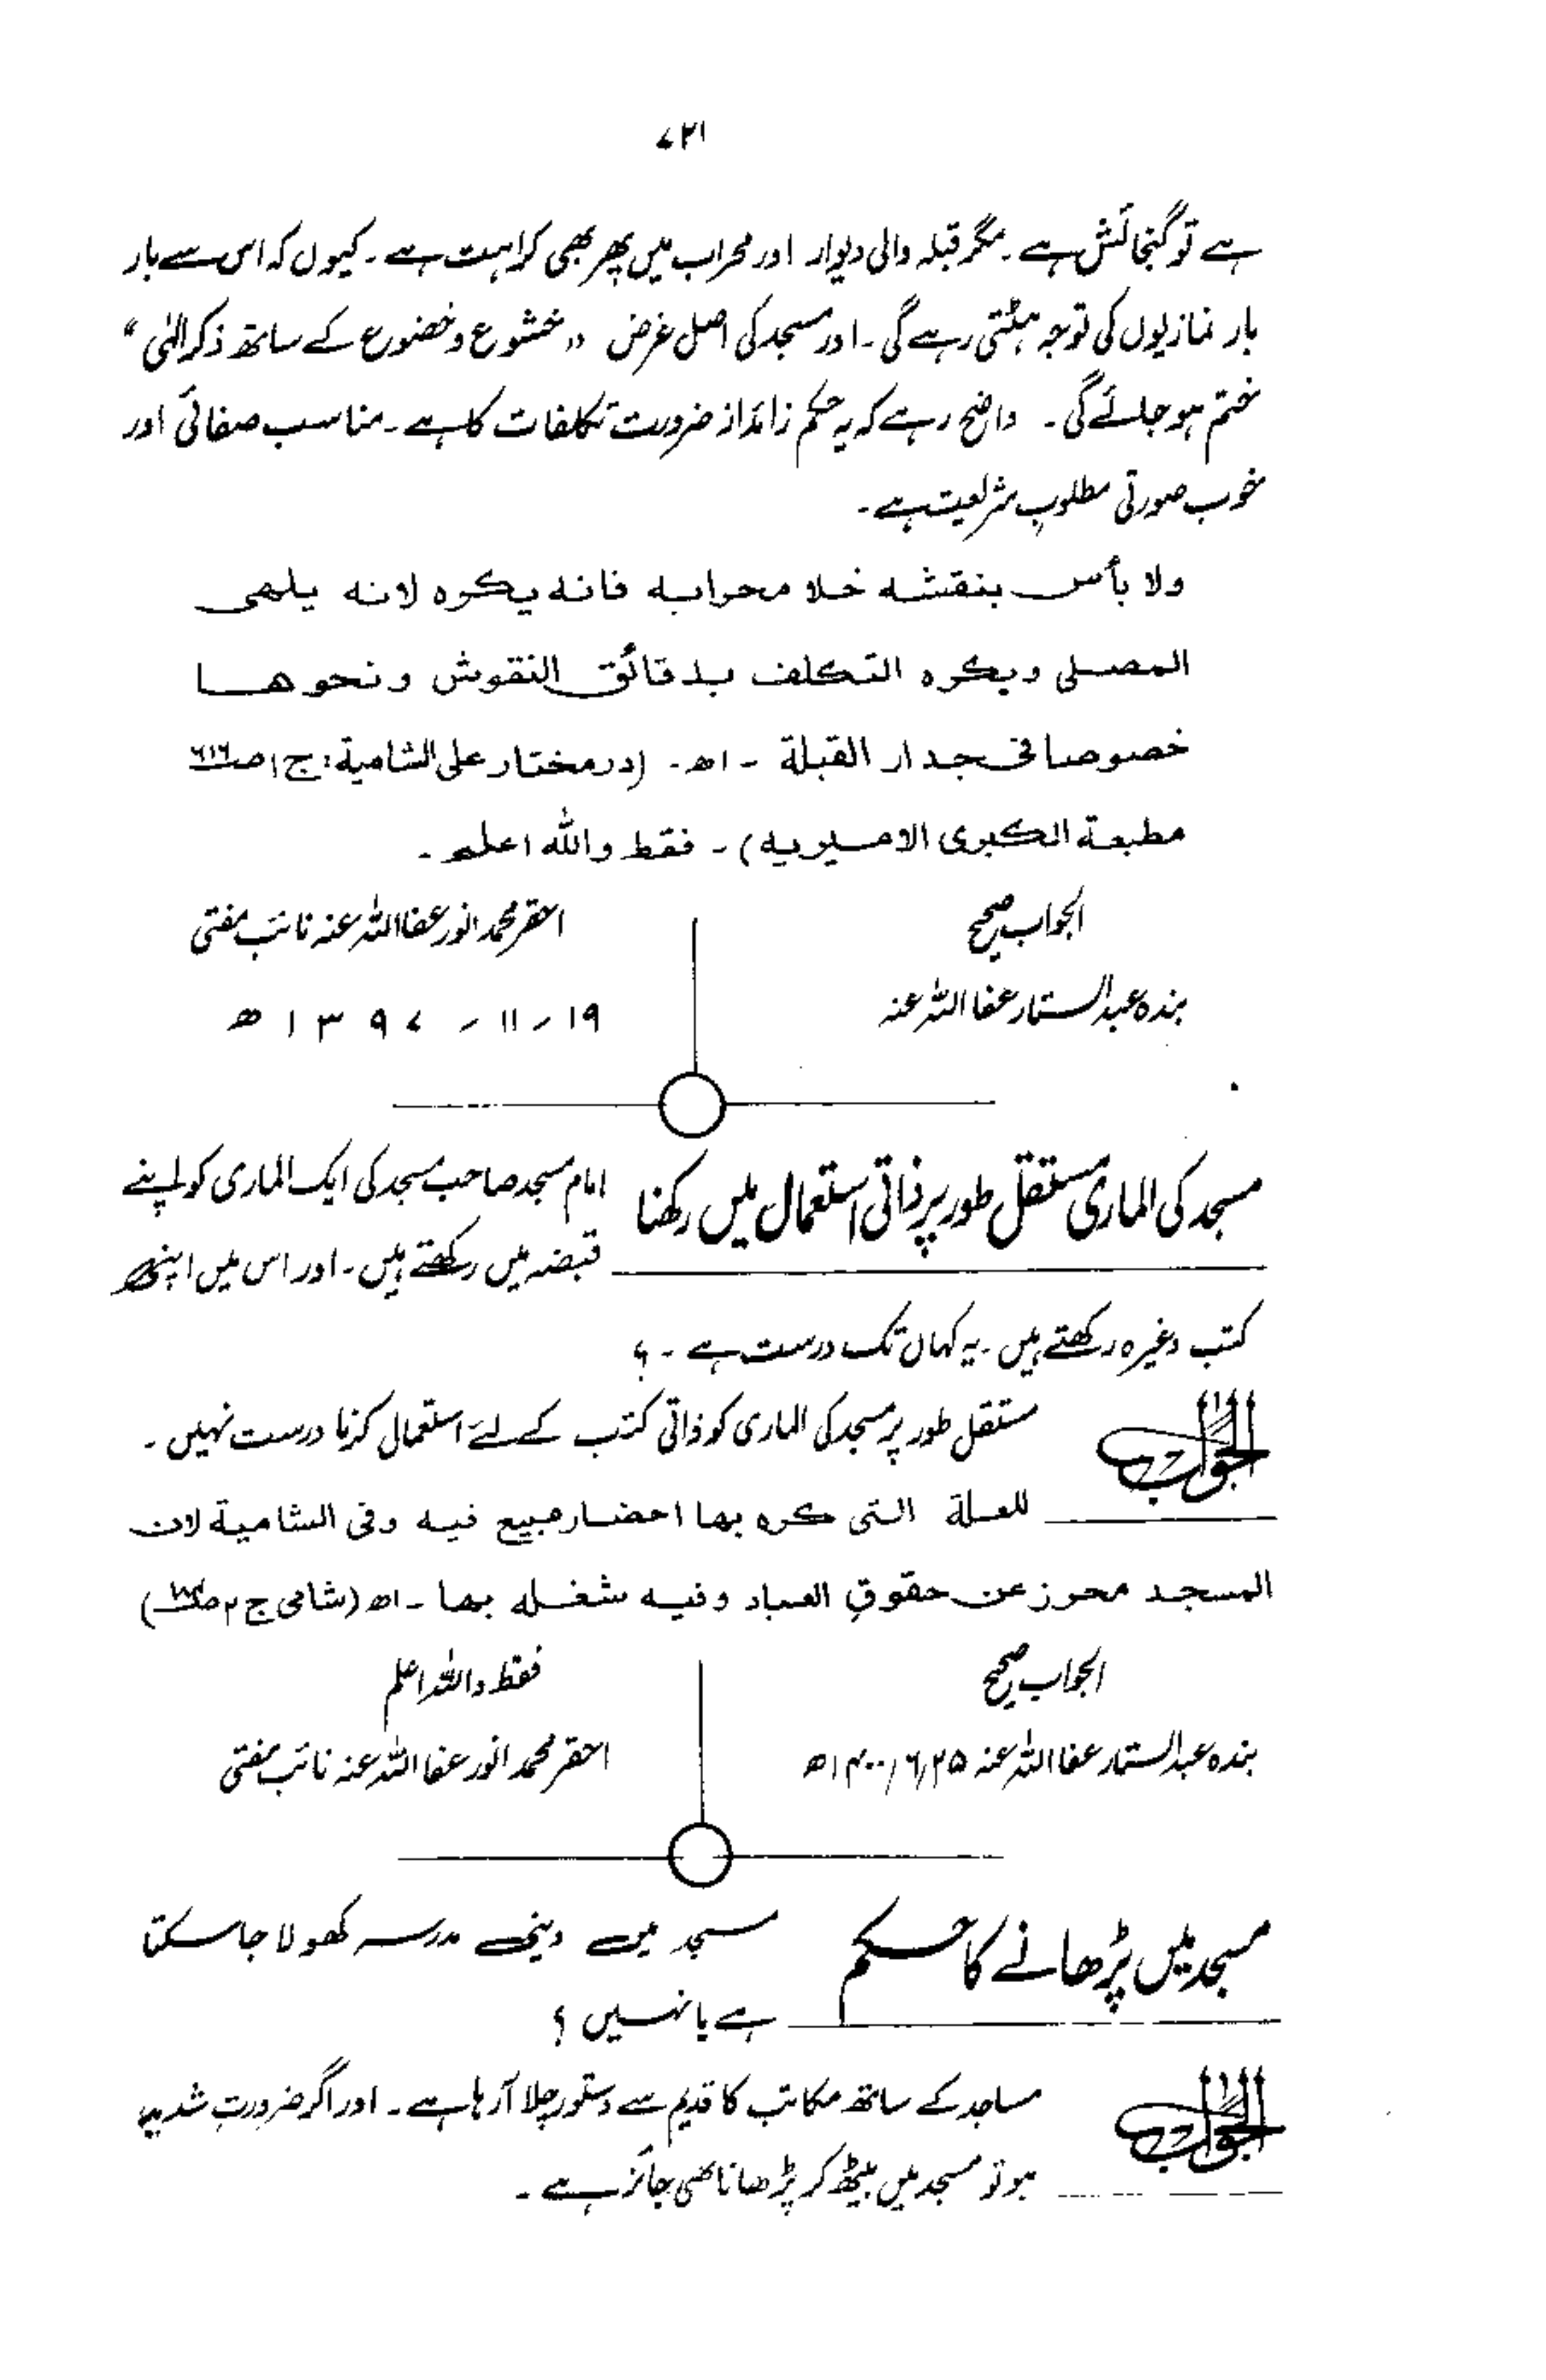 ۷۲۱
ہے تو گنجائش ہے ۔ مگر قبلہ والی دیوار اور محراب میں پھر بھی کراہت ہے ۔ کیوں کہ اس سے بار
بار نمازیوں کی توجہ ہٹتی رہے گی ۔ اور مسجد کی اصل غرض "خشوع و خضوع کے ساتھ ذکر الٰہی"
ختم ہو جائے گی ۔ واضح رہے کہ یہ حکم زائد از ضرورت تکلفات کا ہے ۔ مناسب صفائی اور
خوب صورتی مطلوبِ شرلعیت ہے ۔
ولا بأس بنقشه خلا محرابه فانه يكره لانه يلهى
المصلى ويكره التكلف بدقائق النقوش ونحوها
خصوصا فى جدار القبلة ۔ اھ ۔ (درمختار على الشامية : ج ۱ ص ۶۱۶
مطبعة الكبرى الاميريه) ۔ فقط والله اعلم ۔
الجواب صحیح
بندہ عبدالستار عفا اللہ عنہ
احقر محمد انور عفا اللہ عنہ نائب مفتی
۱۹ ۔ ۱۱ ۔ ۱۳۹۷ ھ
مسجد کی الماری مستقل طور پر ذاتی استعمال میں رکھنا
امام مسجد صاحب مسجد کی ایک الماری کو اپنے
قبضہ میں رکھتے ہیں ۔ اور اس میں اپنی
کتب وغیرہ رکھتے ہیں ۔ یہ کہاں تک درست ہے ۔ ؟
الجواب مستقل طور پر مسجد کی الماری کو ذاتی کتب کے لئے استعمال کرنا درست نہیں ۔
للعلة التى كره بها احضار مبيع فيه وفى الشامية لان
المسجد محرز عن حقوقِ العباد وفيه شغله بها ۔ اھ (شامی ج ۲ ص)
الجواب صحیح
بندہ عبدالستار عفا اللہ عنہ ۲۵ / ۶ / ۱۴۰۰ ھ
فقط واللہ اعلم
احقر محمد انور عفا اللہ عنہ نائب مفتی
مسجد میں پڑھانے کا حکم
مسجد میں دینی مدرسہ کھولا جا سکتا
ہے یا نہیں ؟
الجواب مساجد کے ساتھ مکاتب کا قدیم سے دستور چلا آ رہا ہے ۔ اور اگر ضرورتِ شدید
ہو تو مسجد میں بیٹھ کر پڑھانا بھی جائز ہے ۔